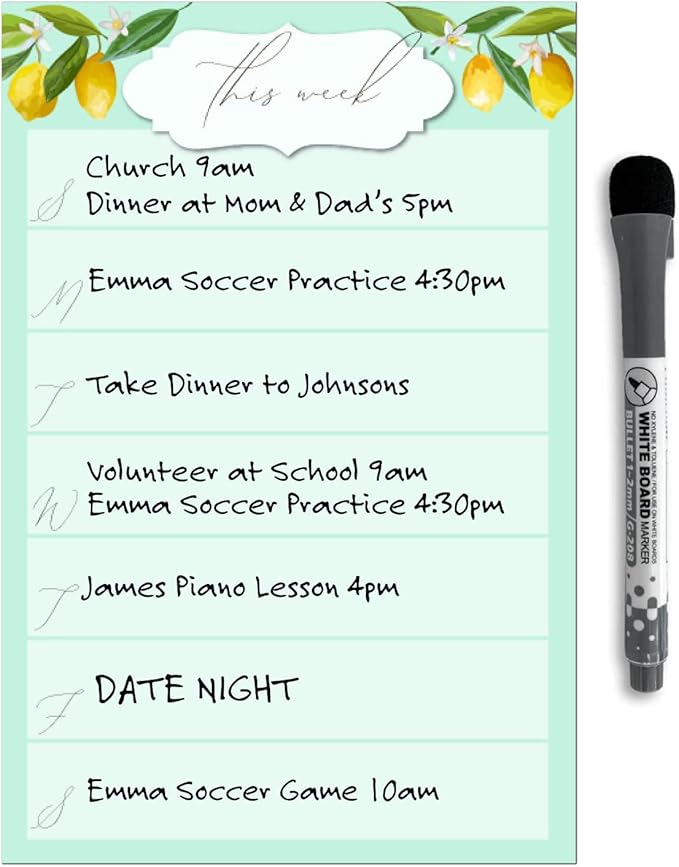 this week
S
Church 9am
Dinner at Mom & Dad's 5pm
M
Emma Soccer Practice 4:30pm
T
Take Dinner to Johnsons
W
Volunteer at School 9am
Emma Soccer Practice 4:30pm
T
James Piano Lesson 4pm
F
DATE NIGHT
S
Emma Soccer Game 10am
NO XYLENE & TOLUENE / FOR USE ON WHITE BOARDS
WHITE BOARD MARKER
BULLET 1~2mm / G-208